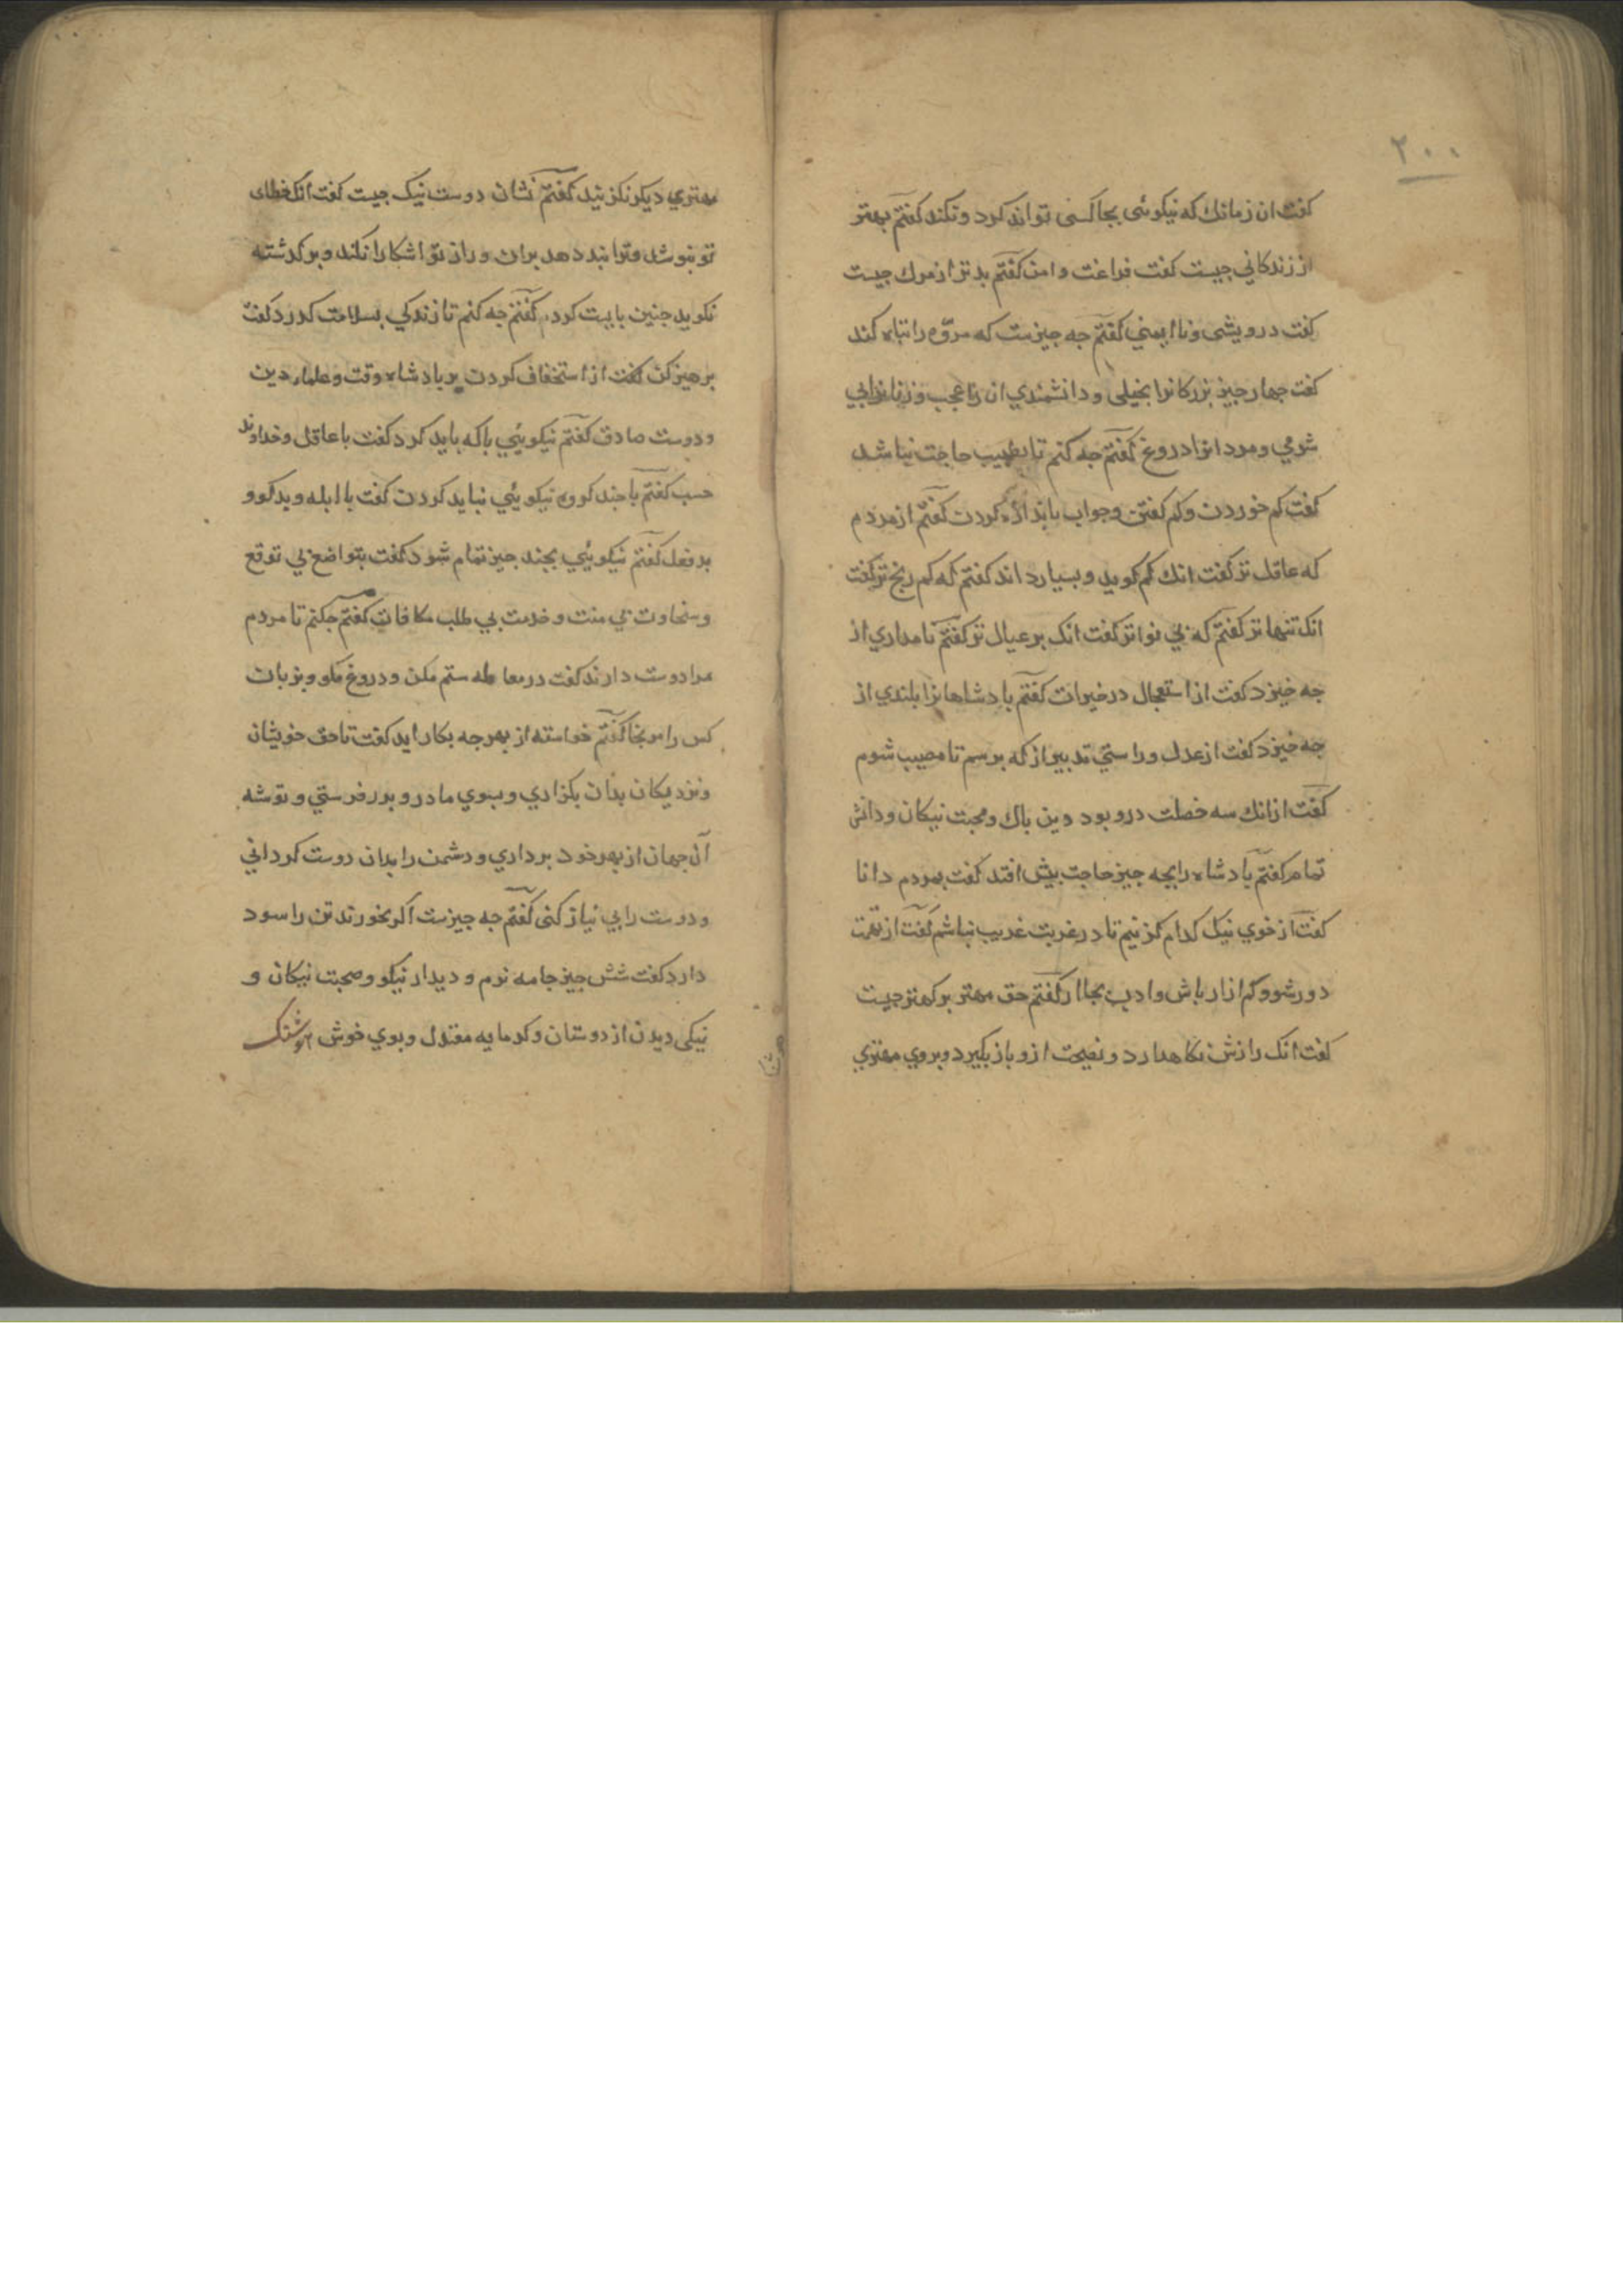 ٢٠٠
كفت ان زمانك كه نيكوئى بجا كسى تواند كرد و نكند كفتم بهتر
از زندكاني جيست كفت فراغت و امن كفتم بدتر از مرك جيست
كفت درويشى و نا ايمني كفتم جه جيزست كه مروّه را تباه كند
كفت جهار جيز بزركانرا بخيلى و دانشمندي ان را عجب و زنانرا بي
شرمي و مردانرا دروغ كفتم جه كنم تا بطبيب حاجت نباشد
كفت كم خوردن و كم كفتن و جواب باندازه كردن كفتم از مردم
كه عاقل تر كفت انك كم كويد و بسيار داند كفتم كه كم رنج تر كفت
انك تنها تر كفتم كه بي نواتر كفت انك بر عيال تر كفتم نامداري از
جه خيزد كفت از استعجال در خيرات كفتم بادشاهانرا بلندي از
جه خيزد كفت از عدل و راستي تدبير از كه برسم تا مصيب شوم
كفت ازانك سه خصلت درو بود دين باك و محبت نيكان و دانش
تمام كفتم بادشاه را بجه جيز حاجت بيش افتد كفت بمردم دانا
كفت از خوي نيك كدام كزنيم تا در غربت غريب نباشم كفت از تهمت
دور شو و كم ازار باش و ادب بجا ار كفتم حق مهتر بر كهتر جيست
كفت انك رازش نكاهدارد و نصيحت ازو باز نكيرد و بروي مهتري
مهتري ديكر نكزنيد كفتم نشان دوست نيك جيست كفت انك خطاى
تو ببوشد و ترا بند دهد بران و راز تو اشكارا نكند و بر كدشته
نكويد جنين بايست كرد كفتم جه كنم تا زندكي بسلامت كدرد كفت
برهيز كن كفت از استخفاف كردن بر بادشاه وقت و علماء دين
و دوست صادق كفتم نيكويئي با كه بايد كرد كفت با عاقل و خداوند
حسب كفتم با جند كروه نيكويئي نبايد كردن كفت با ابله و بدكو و
بد فعل كفتم نيكويئي بجند جيز تمام شود كفت بتواضع بي توقع
و سخاوت بي منت و خدمت بي طلب مكافات كفتم جكنم تا مردم
مرا دوست دارند كفت در معامله ستم مكن و دروغ مكو و بزبان
كس را مرنجا كفتم خواسته از بهر جه بكار ايد كفت تا حق خويشان
و نزديكان بدان بكزاري و بسوي مادر و بدر فرستي و توشه
آن جهان از بهر خود برداري و دشمن را بدان دوست كرداني
و دوست را بي نياز كنى كفتم جه جيزست اكر بخورند تن را سود
دارد كفت شش جيز جامه نرم و ديدار نيكو و صحبت نيكان و
نيكى ديدن از دوستان و كرمابه معتدل و بوي خوش